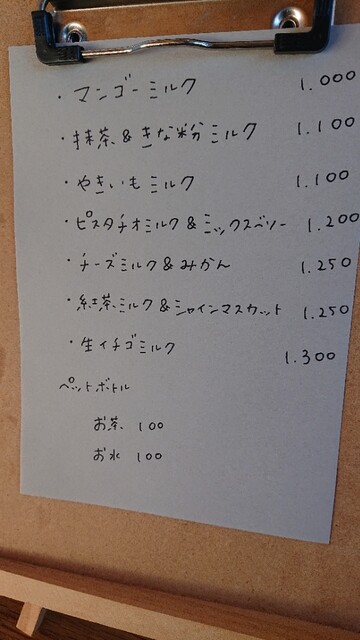 ・マンゴーミルク 1.000
・抹茶&きな粉ミルク 1.100
・やきいもミルク 1.100
・ピスタチオミルク&ミックスベリー 1.200
・チーズミルク&みかん 1.250
・紅茶ミルク&シャインマスカット 1.250
・生イチゴミルク 1.300
ペットボトル
お茶 100
お水 100